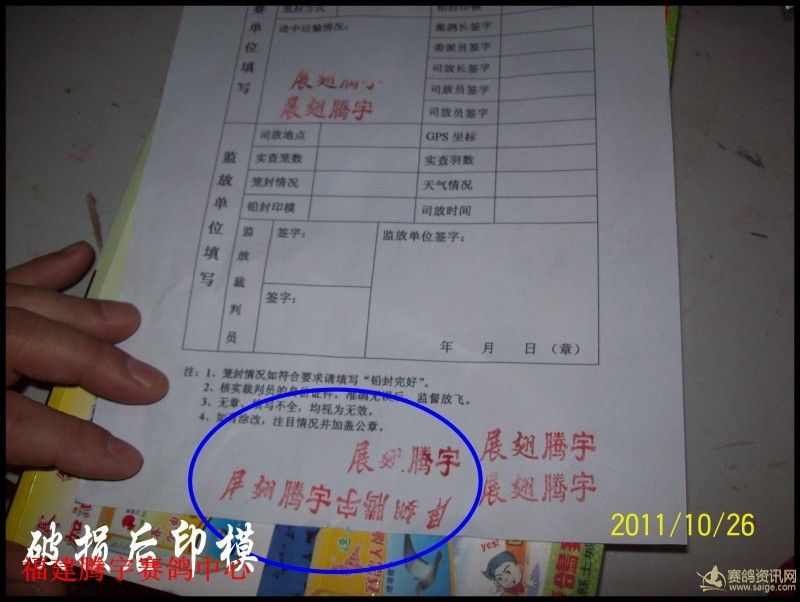 赛单位填写
笼封方式
铅封印模
途中运输情况：
集鸽长签字
委派员签字
司放长签字
司放员签字
司放员签字
展翅腾宇
展翅腾宇
监放单位填写
司放地点
GPS 坐标
实查笼数
实查羽数
笼封情况
天气情况
铅封印模
司放时间
监放裁判员
签字：
监放单位签字：
签字：
年 月 日（章）
注：1、笼封情况如符合要求请填写“铅封完好”。
2、核实裁判员的身份证件，准确无误后，监督放飞。
3、无章、填写不全，均视为无效。
4、如有涂改，注目情况并加盖公章。
展翅腾宇
展翅腾宇
展翅腾宇
展翅腾宇
展翅腾宇
破损后印模
福建腾宇赛鸽中心
yes!
2011/10/26
赛鸽资讯网
www.saige.com